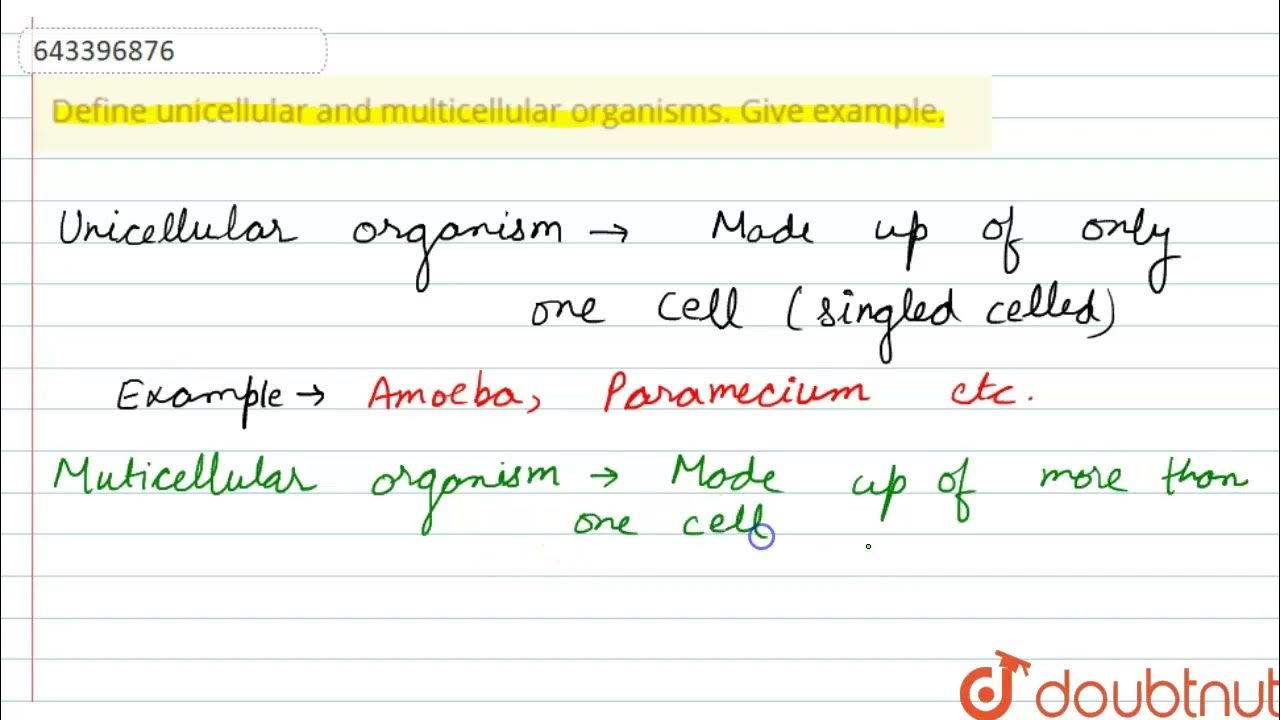 643396876
Define unicellular and multicellular organisms. Give example.
Unicellular organism → Made up of only
one cell (singled celled)
Example → Amoeba, Paramecium etc.
Muticellular organism → Made up of more than
one cell
doubtnut